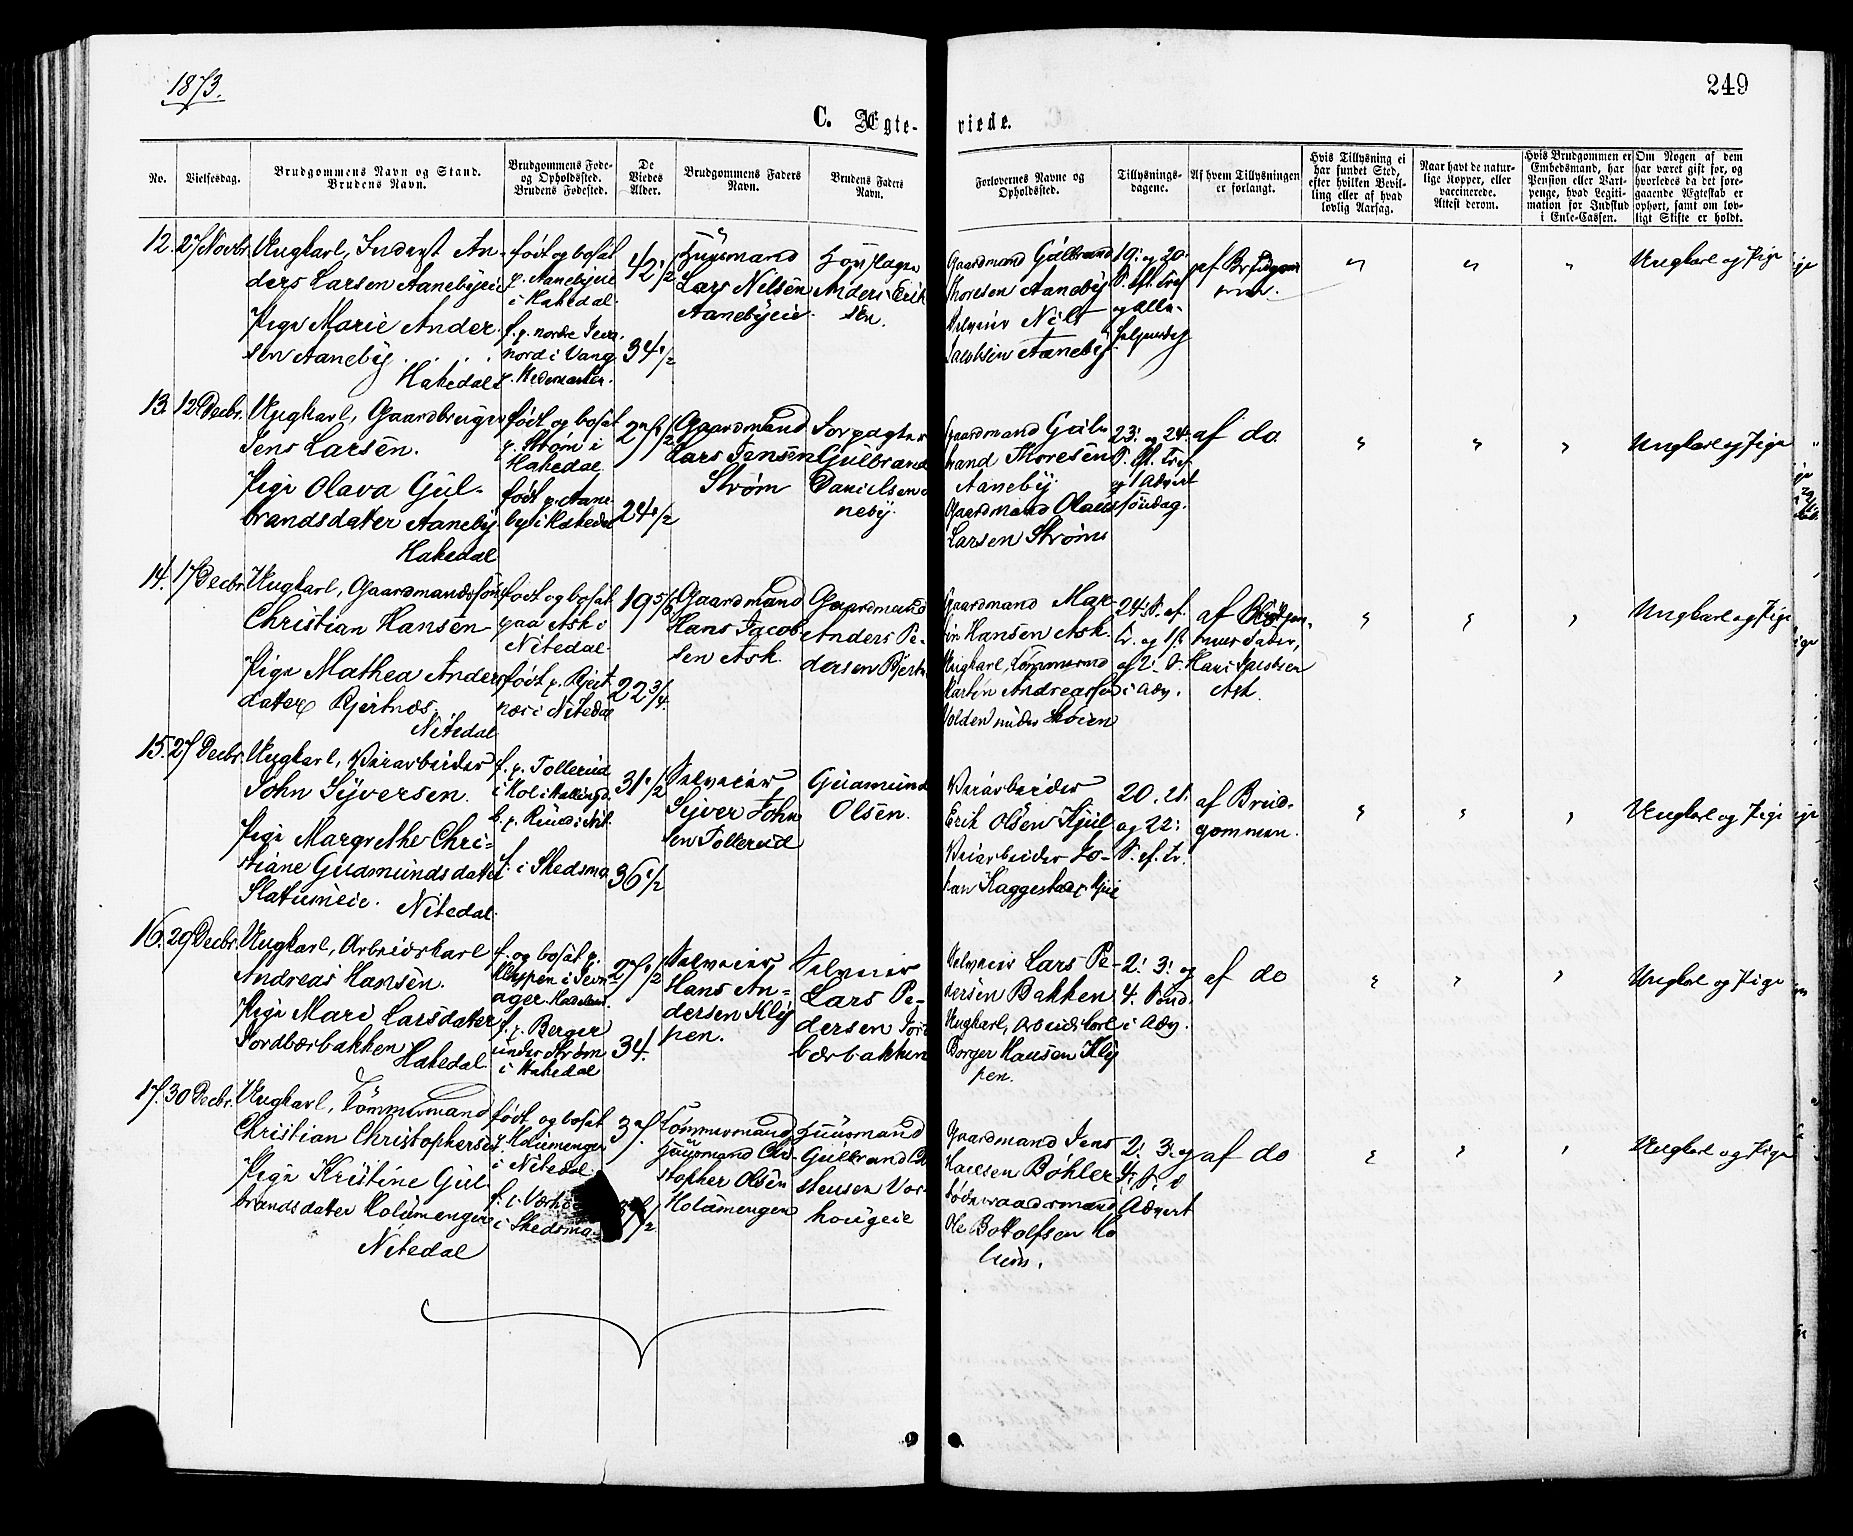 1873.
249
C. Ægte-
viede.
No.
Vielsesdag.
Brudgommens Navn og Stand.
Brudens Navn.
Brudgommens Føde-
og Opholdssted.
Brudens Fødested.
De
Viedes
Alder.
Brudgommens Faders
Navn.
Brudens Faders
Navn.
Forlovernes Navne og
Opholdssted.
Tillysnings-
dagene.
Af hvem Tillysningen
er forlangt.
Hvis Tillysning ei
har fundet Sted,
efter hvilken Bevil-
ling eller af hvad
lovlig Aarsag.
Naar havt de natur-
lige Kopper, eller
vaccinerede.
Attest derom.
Hvis Brudgommen er
Embedsmand, har
Pension eller Vart-
penge, hvad Legiti-
mation for Indskud
i Enke-Cassen.
Om Nogen af dem
har været gift før, og
hvorledes da det fore-
gaaende Ægteskab er
ophørt, samt om lov-
ligt Skifte er holdt.
12. 27 Novbr.
Ungkarl, Inderst An-
ders Larsen Aanebyeie
Pige Marie Ander
sen Aaneby
Hakedal
født og bosat
p. Aanebyeie
i Hakedal.
f. p. nordre
nord i Vang
p. Hedemarken.
42 1/2
34 1/2
Huusmand
Lars Nilsen
Aanebyeie.
Anders Erik
sen.
Gaardmand Gulbrand
Thoresen Aaneby
Selveier Nils
Jacobsen Aaneby.
19. og 20.
S. eft. Tref
Ungkarl og Pige
13. 12 Decbr.
Ungkarl, Gaardbruger
Jens Larsen.
Pige Olava Gul-
brandsdatter Aaneby
Hakedal
født og bosat
p. Strøm i
Hakedal
født p. Aane-
by i Hakedal
27 1/2
24 1/2
Gaardmand
Lars Jensen
Strøm
Forpagter
Gulbrand
Danielsen Aa
neby.
Gaardmand Gul-
brand Thoresen
Aaneby
Gaardmand Olaus
Larsen Strøm
23. og 24.
S. eft. Tref.
og 1 Advent
søndag.
af do.
Ungkarl og Pige
14. 17 Decbr.
Ungkarl, Gaardmandssøn
Christian Hansen
Pige Mathea Anders
datter Bjertnæs.
Nitedal
født og bosat
paa Ask i
Nitedal.
født p. Bjert
næs i Nitedal
19 5/6
22 3/4.
Gaardmand
Hans Jacob
sen Ask.
Gaardmand
Anders Pe-
dersen Bjertn
Gaardmand Mar-
tin Hansen Ask.
Ungkarl, Tømmermand
Martin Andreassen
Volden under
24. S. ef.
Tr. og 1st
og 2. S.
i Adv.
af Brudgom-
mens Fader,
Hans Jacobsen
Ask.
Ungkarl og Pige
15. 27 Decbr.
Ungkarl, Veiarbeider
John Syversen.
Pige Margrethe Chri-
stiane Gudmundsdatter
Slatumeie. Nitedal.
f. p. Tollerud
i Hol i Hallingd.
b. p. Ruud i Nit.
f. i Skedsmo
31 1/2
36 1/2
Selveier
Syver John
sen Tollerud
Gudmund
Olsen.
Veiarbeider
Erik Olsen Kjul
Veiarbeider Jo-
han Haggestad p. Kjul
20. 21.
og 22.
S. ef. Tr.
af Brud-
gommen.
Ungkarl og Pige
16. 29 Decbr.
Ungkarl, Arbeidskarl
Andreas Hansen.
Pige Mari Larsdatter
Jordbærbakken
Hakedal.
f. og bosat p.
Klypen i Jevn-
ager. Hadeland.
f. p. Berger
under Strøm
i Hakedal
27 1/2
34.
Selveier
Hans An-
dersen Kly
pen.
Selveier
Lars Pe-
dersen Jord
bærbakken
Selveier Lars Pe-
dersen Bakken
Ungkarl, Arbeidskarl
Borger Hansen Kly
pen.
2. 3. og
4. Sønd.
i Adv.
af do
Ungkarl og Pige
17. 30 Decbr.
Ungkarl, Tømmermand
Christian Christophersen
Pige Kristine Gul
brandsdatter Holumenger
Nitedal
født og bosat
p. Holumenger
i Nitedal.
f. i
i Skedsmo
37.
Tømmermand
Huusmand Chri
stopher Olsen
Holumengen
Huusmand
Gulbrand Chri
stensen Var-
hougeie
Gaardmand Jens
Hansen Bøhler
Ole Bottolfsen Ho
lum.
2. 3. og
4. S. i
Advent
af do
Ungkarl og Pige